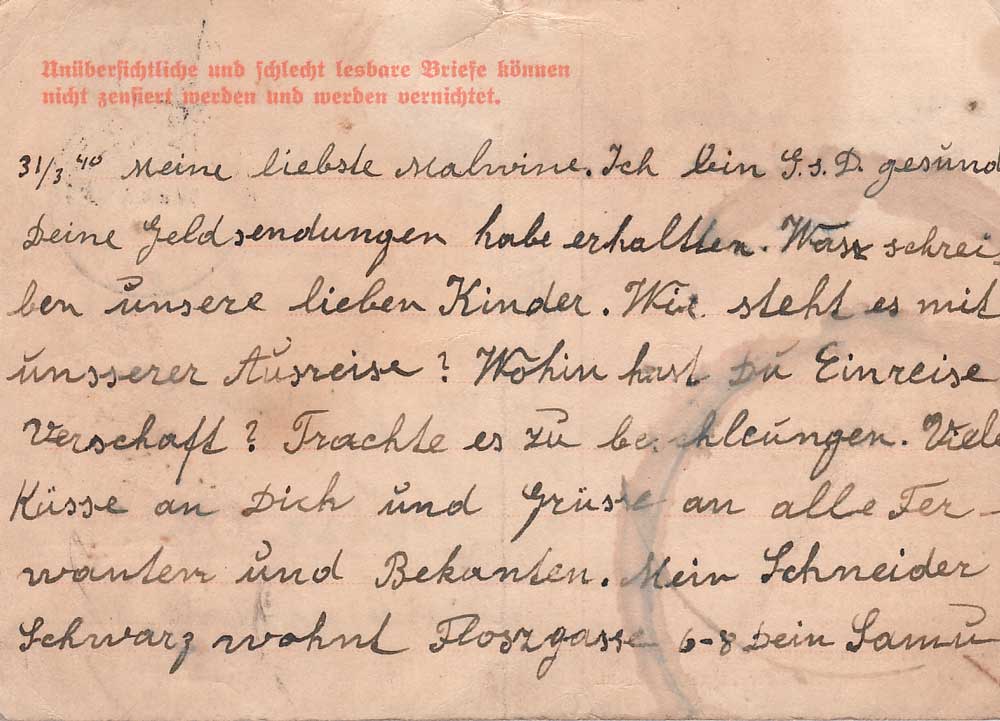 Unübersichtliche und schlecht lesbare Briefe können
nicht zensiert werden und werden vernichtet.
31/3 40 Meine liebste Malwine. Ich bin G.s.D. gesund
Deine Geldsendungen habe erhaltten. Wasz schrei-
ben unsere lieben Kinder. Wie steht es mit
unsserer Ausreise? Wohin hast Du Einreise
Verschaft? Trachte es zu beschleungen. Viele
Küsse an Dich und Grüsse an alle Fer-
wanten und Bekanten. Mein Schneider
Schwarz wohnt Floszgasse 6-8 Dein Samu